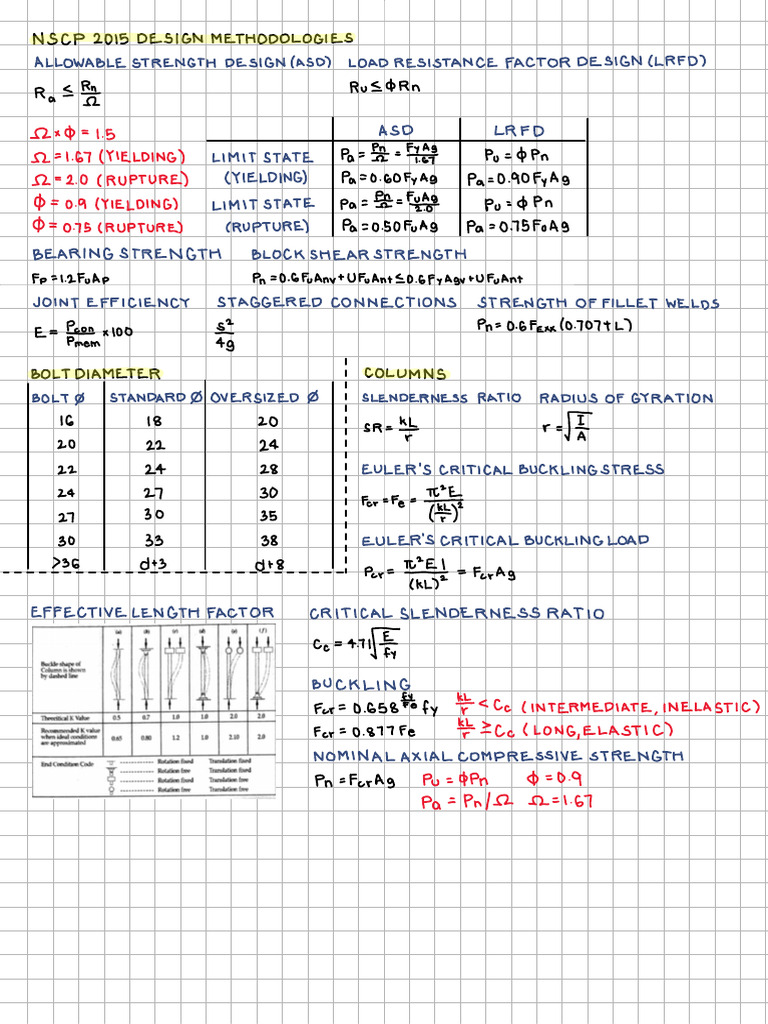 NSCP 2015 DESIGN METHODOLOGIES
ALLOWABLE STRENGTH DESIGN (ASD) LOAD RESISTANCE FACTOR DESIGN (LRFD)
Ra ≤ Rn/Ω Ru ≤ ΦRn
Ω × Φ = 1.5
Ω = 1.67 (YIELDING)
Ω = 2.0 (RUPTURE)
Φ = 0.9 (YIELDING)
Φ = 0.75 (RUPTURE)
ASD LRFD
LIMIT STATE Pa = Pn/Ω = FyAg/1.67 Pu = ΦPn
(YIELDING) Pa = 0.60FyAg Pa = 0.90FyAg
LIMIT STATE Pa = Pn/Ω = FuAg/2.0 Pu = ΦPn
(RUPTURE) Pa = 0.50FuAg Pa = 0.75FuAg
BEARING STRENGTH BLOCK SHEAR STRENGTH
Fp = 1.2FuAp Pn = 0.6FuAnv + UFuAnt ≤ 0.6FyAgv + UFuAnt
JOINT EFFICIENCY STAGGERED CONNECTIONS STRENGTH OF FILLET WELDS
E = Pcon/Pmem × 100 s²/4g Pn = 0.6FExx (0.707tL)
BOLT DIAMETER
BOLT Ø STANDARD Ø OVERSIZED Ø
16 18 20
20 22 24
22 24 28
24 27 30
27 30 35
30 33 38
>36 d+3 d+8
COLUMNS
SLENDERNESS RATIO RADIUS OF GYRATION
SR = kL/r r = √(I/A)
EULER'S CRITICAL BUCKLING STRESS
Fcr = Fe = π²E/(kL/r)²
EULER'S CRITICAL BUCKLING LOAD
Pcr = π²EI/(kL)² = FcrAg
EFFECTIVE LENGTH FACTOR
(a) (b) (c) (d) (e) (f)
Buckle shape of
Column is shown
by dashed line
Theoritical K Value 0.5 0.7 1.0 1.0 2.0 2.0
Recommended K value
when ideal conditions
are approximated
0.65 0.80 1.2 1.0 2.10 2.0
End Condition Code
Rotation fixed Translation fixed
Rotation free Translation fixed
Rotation fixed Translation free
Rotation free Translation free
CRITICAL SLENDERNESS RATIO
Cc = 4.71√(E/fy)
BUCKLING
Fcr = 0.658^(fy/Fe) fy kL/r < Cc (INTERMEDIATE, INELASTIC)
Fcr = 0.877Fe kL/r ≥ Cc (LONG, ELASTIC)
NOMINAL AXIAL COMPRESSIVE STRENGTH
Pn = FcrAg Pu = ΦPn Φ = 0.9
Pa = Pn/Ω Ω = 1.67